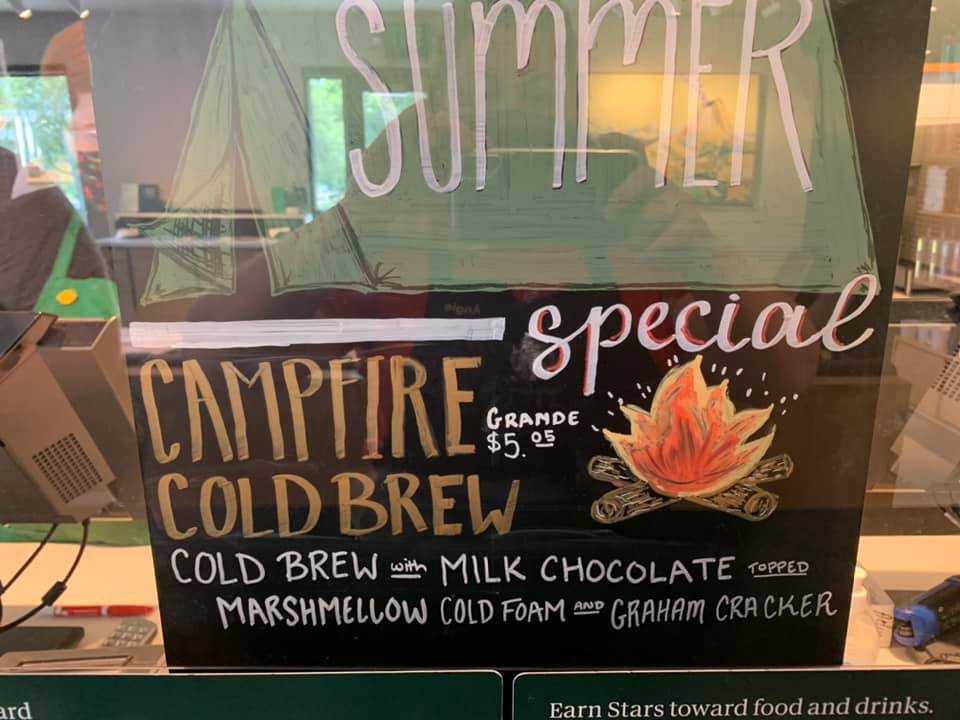 SUMMER
special
CAMPFIRE
GRANDE
$5.05
COLD BREW
COLD BREW with MILK CHOCOLATE TOPPED
MARSHMELLOW COLD FOAM AND GRAHAM CRACKER
ard
Earn Stars toward food and drinks.